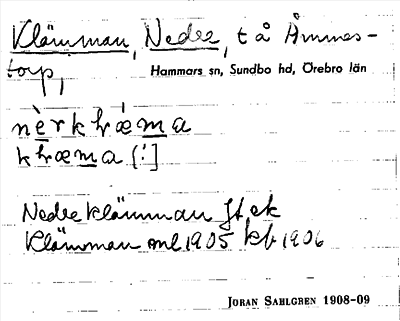 Klämman, Nedre, t å Åmmes-
torp,
Hammars sn, Sundbo hd, Örebro län
Nedre Klämman Jt ek
Klämman ml 1905 kb 1906
JORAN SAHLGREN 1908-09